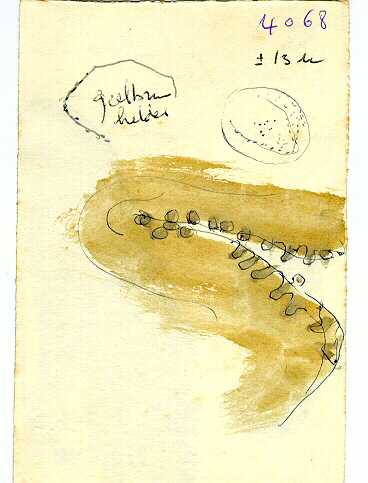 4068
± 13 u
geelbrun
helder